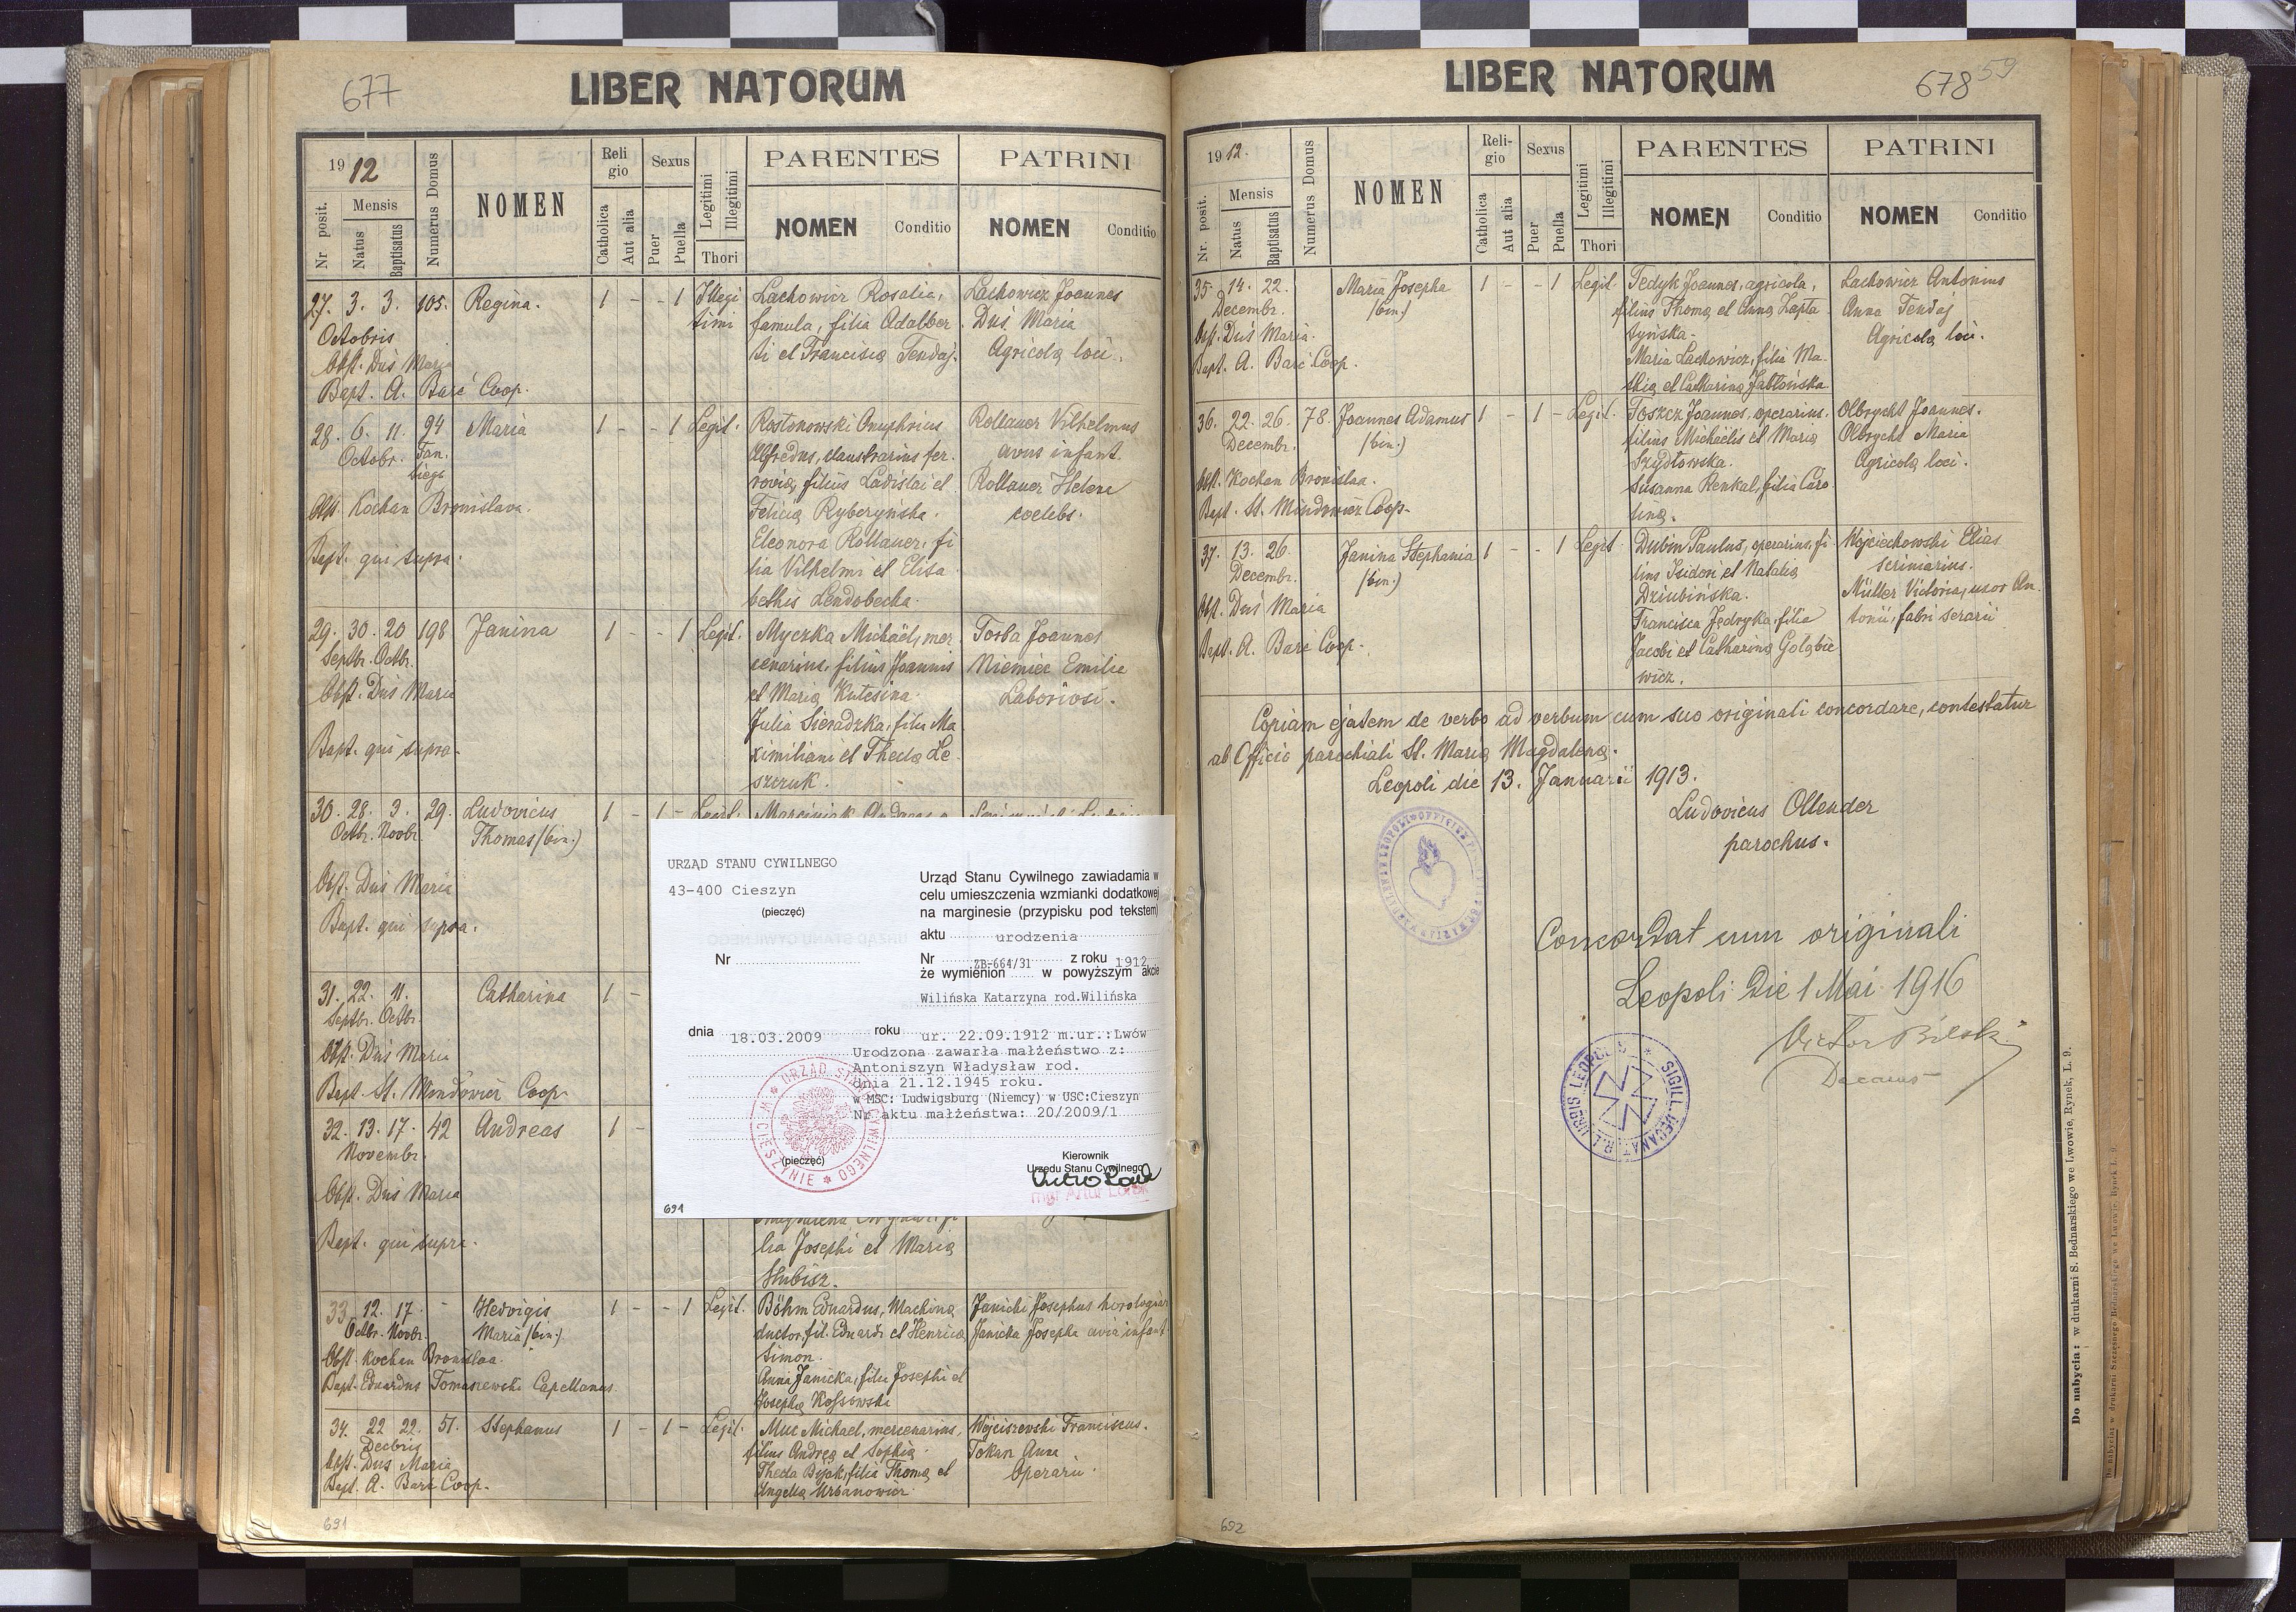 677
LIBER NATORUM
1912
Nr posit.
Mensis
Natus
Baptisatus
Numerus Domus
NOMEN
Reli
gio
Catholica
Aut alia
Sexus
Puer
Puella
Legitimi
Illegitimi
Thori
PARENTES
NOMEN
Conditio
PATRINI
NOMEN
Conditio
27. 3. 3. 105. Regina. 1 - - 1 Illegi
timi
Octobris
Obst. Duś Maria
Bapt. A. Barć Coop.
Lachowicz Rosalia,
famula, filia Adalber
ti et Francisca Tendaj.
Lachowicz Joannes
Duś Maria
Agricolą loci.
28. 6. 11. 94 Maria 1 - - 1 Legit.
Octobr.
Obst. Kochan Bronislava.
Bapt. qui supra.
Rostokowski Onuphrius
Alfredus, claustrarius fer.
rovią, filius Ladislai et
Felicią Ryberyńska.
Eleonora Rollauer, fi
lia Vilhelmi et Elisa
bethis Lendobecka.
Rollauer Vilhelmus
avus infant.
Rollauer Helena
coelebs.
29. 30. 20 198 Janina 1 - - 1 Legit.
Septbr. Octbr.
Obst. Duś Maria
Bapt. qui supra.
Myczka Michaël, mer
cenarius, filius Joannis
et Marią Kutesina.
Julia Sieradzka, filia Ma
ximiliani et Theclą Le
szczuk.
Torba Joannes
Niemiec Emilia
Laboriosi.
30. 28. 3. 29. Ludovicus 1 - 1 - Legit.
Octbr. Novbr. Thomas (bin.)
Obst. Duś Maria
Bapt. qui supra.
31. 22. 11. Catharina 1 -
Septbr. Octbr.
Obst. Duś Maria
Bapt. St. Mindowicz Coop.
32. 13. 17. 42 Andreas 1 -
Novembr.
Obst. Duś Maria
Bapt. qui supra.
lia Josephi et Marią
Hubisz.
URZĄD STANU CYWILNEGO
43-400 Cieszyn
(pieczęć)
Nr
Urząd Stanu Cywilnego zawiadamia w
celu umieszczenia wzmianki dodatkowej
na marginesie (przypisku pod tekstem)
aktu urodzenia
Nr ZB-664/31 z roku 1912
że wymienion w powyższym akcie
Wilińska Katarzyna rod.Wilińska
dnia 18.03.2009 roku ur. 22.09.1912 m.ur.:Lwów
Urodzona zawarła małżeństwo z:
Antoniszyn Władysław rod.
dnia 21.12.1945 roku.
w MSC: Ludwigsburg (Niemcy) w USC:Cieszyn
Nr aktu małżeństwa: 20/2009/1
URZĄD STANU CYWILNEGO W CIESZYNIE
(pieczęć)
Kierownik
Urzędu Stanu Cywilnego
691
33. 12. 17. - Hedvigis 1 - - 1 Legit.
Octbr. Novbr. Maria (bin.)
Obst. Kochan Bronislaa.
Bapt. Eduardus Tomaszewski Capellanus.
Böhm Eduardus, Machiną
ductor, fil. Eduardi et Henricą
Simon.
Anna Janicka, filia Josephi et
Josephą Kossowski
Janicki Josephus horologiar
Janicka Josepha avia infant.
34. 22 22. 51. Stephanus 1 - 1 - Legit.
Decbris
Obst. Duś Maria
Bapt. A. Barć Coop.
Muc Michael, mercenarius,
filius Andreą et Sophią.
Thecla Bąk, filia Thomą et
Angelą Urbanowicz.
Wojciszewski Franciscus.
Tokan Anna
Operarii.
691
LIBER NATORUM
678 59
1912.
Nr. posit.
Mensis
Natus
Baptisatus
Numerus Domus
NOMEN
Reli-
gio
Catholica
Aut alia
Sexus
Puer
Puella
Legitimi
Illegitimi
Thori
PARENTES
NOMEN
Conditio
PATRINI
NOMEN
Conditio
35. 14. 22. Maria Josepha 1 - - 1 Legit
Decembr. (bin.)
Obst. Duś Maria.
Bapt. A. Barć Coop.
Tedyk Joannes, agricola,
filius Thomą et Anną Łapta
tyńska.
Maria Lachowicz, filia Ma-
thią et Cathariną Jabłońska
Lachowicz Antonius
Anna Tendaj
Agricolą loci.
36. 22. 26. 78. Joannes Adamus 1 - 1 - Legit.
Decembr. (bin.)
Obst. Kochan Bronislaa.
Bapt. St. Mindowicz Coop.
Toszcz Joannes, operarius.
filius Michaëlis et Marią
Szydłowska.
Susanna Renkal, filia Caro
liną.
Olbrycht Joannes.
Olbrycht Maria
Agricolą loci.
37. 13. 26. Janina Stephania 1 - - 1 Legit
Decembr. (bin.)
Obst. Duś Maria
Bapt. A. Barć Coop.
Dubin Paulus, operarius, fi
lius Isidori et Natalią
Dziubińska.
Francisca Jędryka, filia
Jacobi et Catharina Gołąbie
wicz.
Wojciechowski Elias
scriniarius.
Müller Victoria, uxor An
tonii, fabri serarii
Copiam ejatem de verbo ad verbum cum suo originali concordare, contestatur
ab Officio parochiali St. Marią Magdaleną.
Leopoli die 13. Januarii 1913.
Ludovicus Ollender
parochus.
Concordat cum originali
Leopoli die 1 Mai 1916
Victor Bilski
Decanus
692
Do nabycia: w drukarni S. Bednarskiego we Lwowie, Rynek, L. 9.
Do nabycia: w drukarni Szczęsnego Bednarskiego we Lwowie, Rynek L. 9.